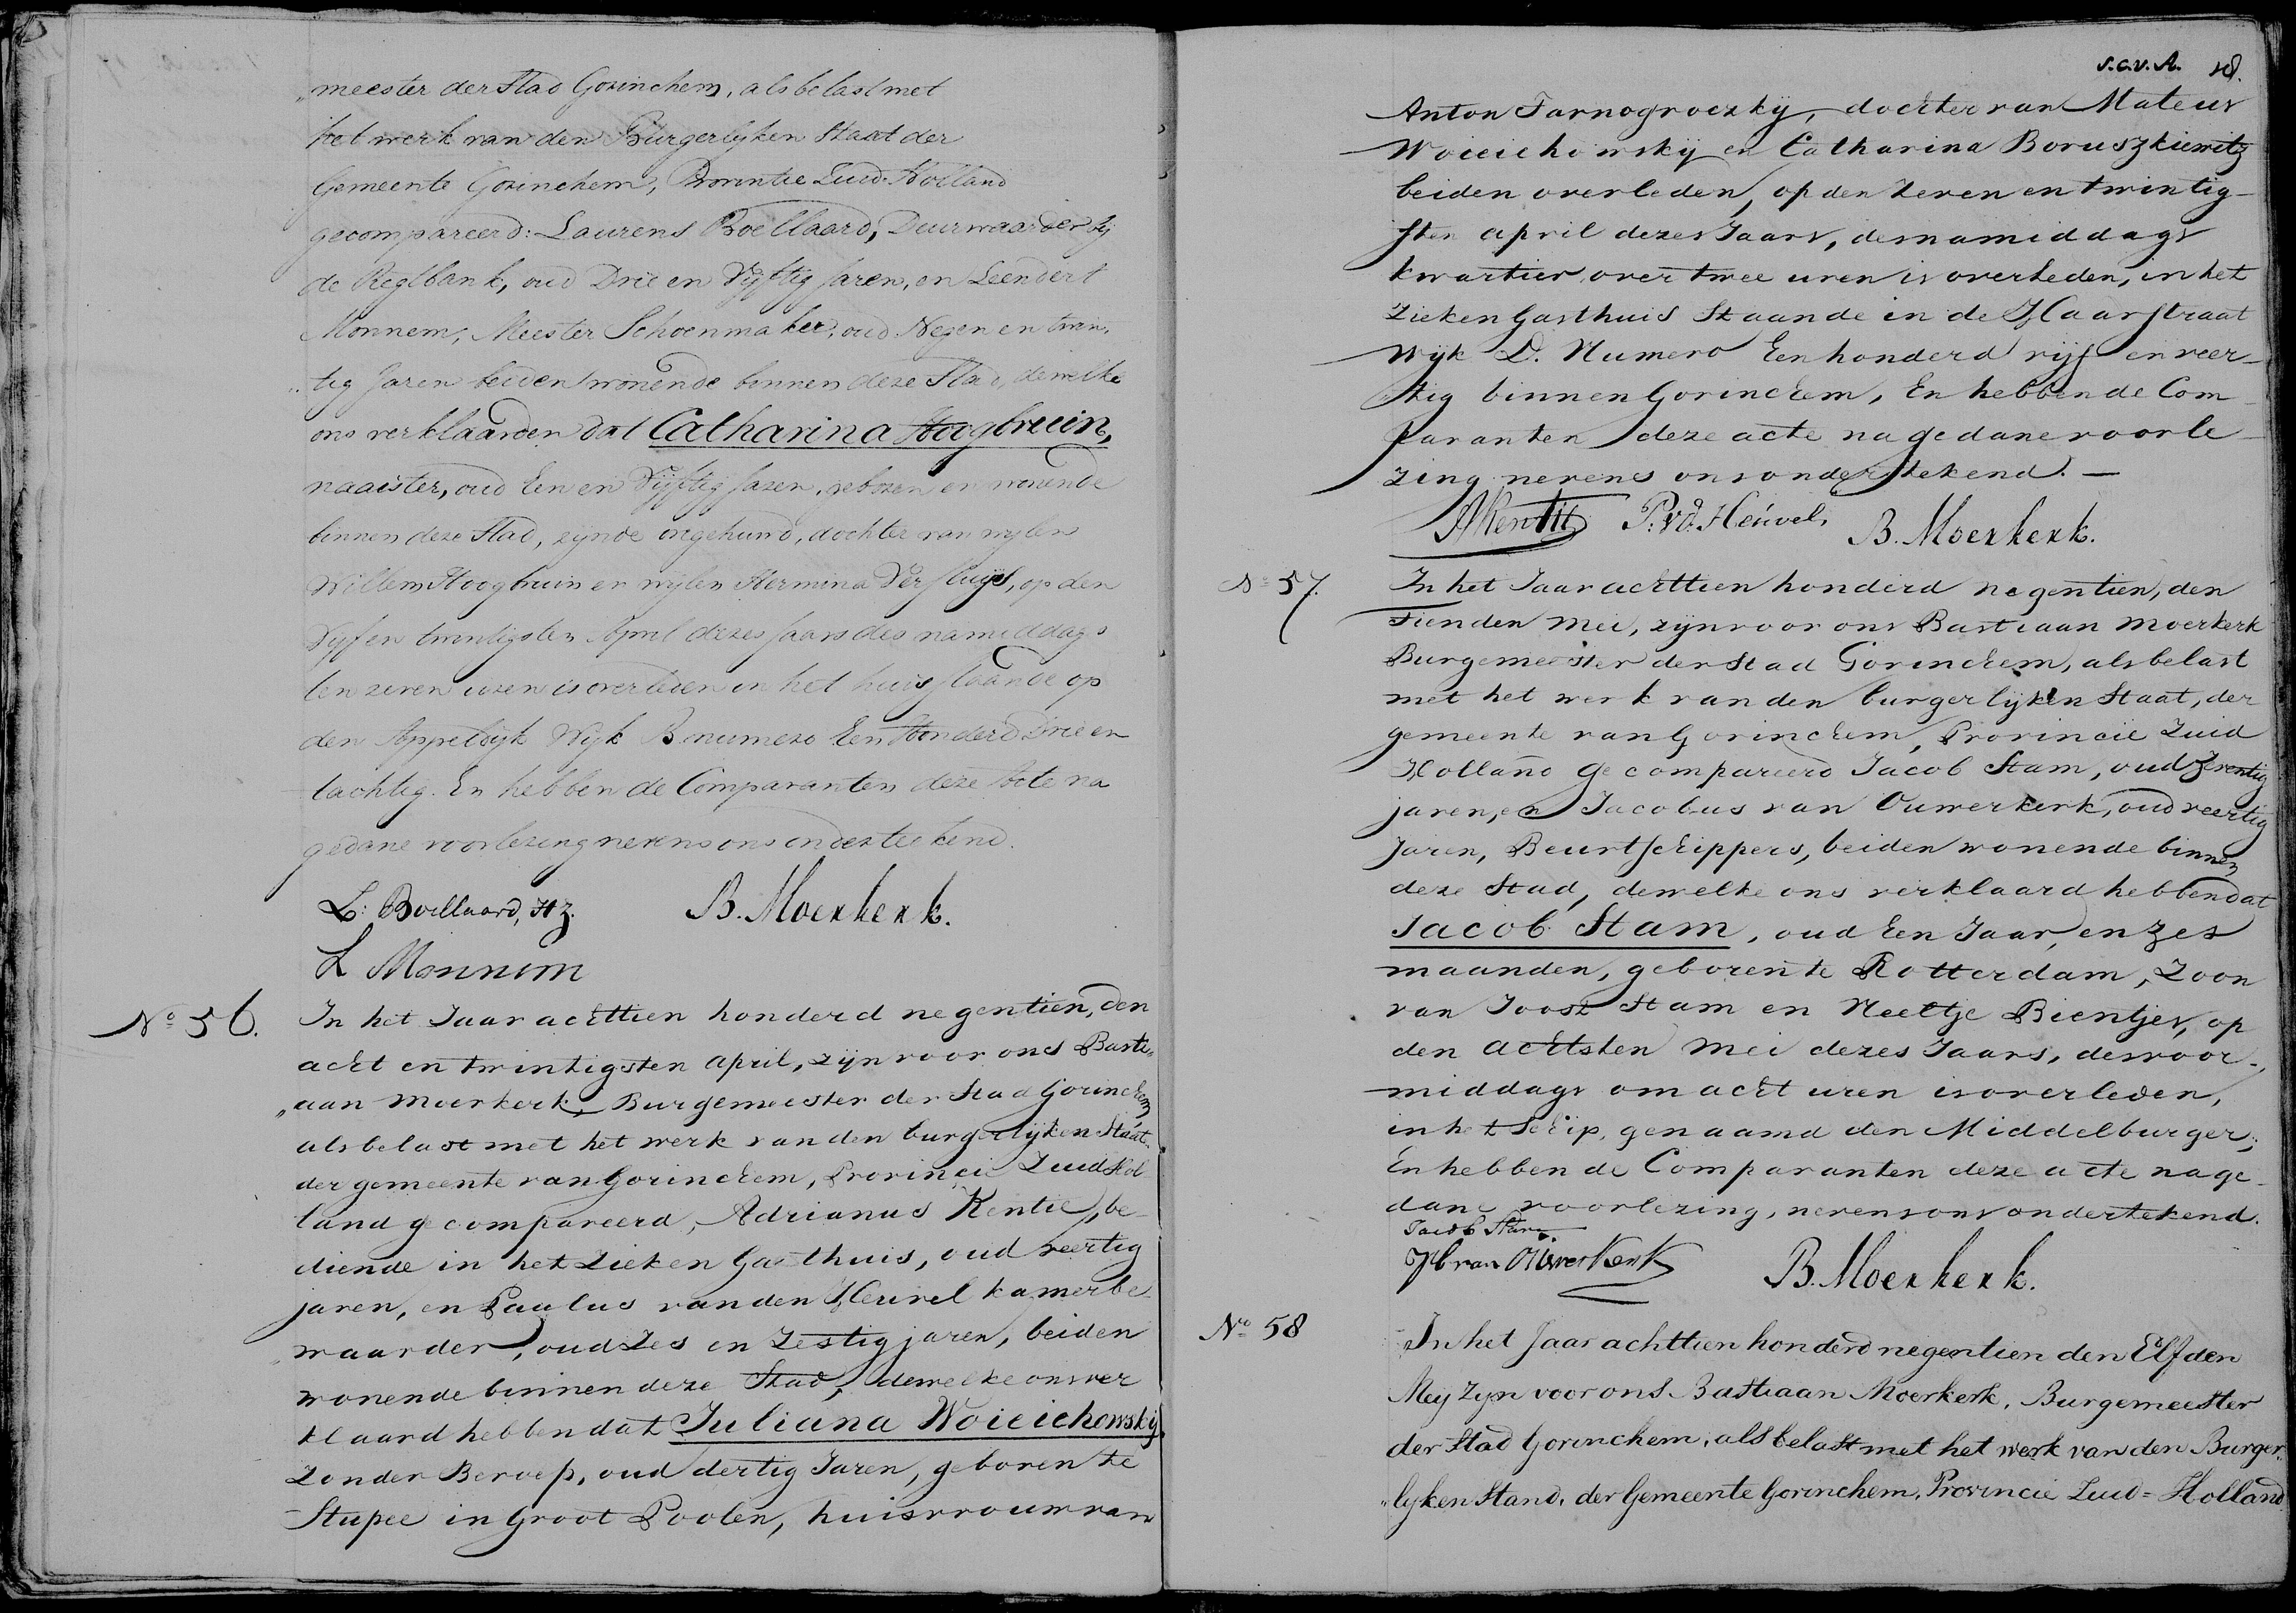 „meester der Stad Gorinchem, als belast met
het werk van den Burgerlyken Staat der
Gemeente Gorinchem, Provintie Zuid-Holland
gecompareerd: Laurens Boellaard, Deurwaarder by
de Regtbank, oud Drie en Vyftig Jaren, en Leendert
Monnem, Meester Schoenmaker, oud Negen en twin„
„tig Jaren beiden wonende binnen deze Stad, dewelke
ons verklaarden dat Catharina Hoogbruin,
naaister, oud Een en Vyftig Jaren, geboren en wonende
binnen deze Stad, zynde ongehuwd, dochter van wylen
Willem Hoogbruin en wylen Hermina Versluys, op den
Vyf en twintigsten April dezes Jaars des namiddags
ten zeven uren is overleden in het huis staande op
den Appeldyk Wyk B numero Een Honderd Drie en
tachtig. En hebben de Comparanten deze Acte na
gedane voorlezing nevens ons onderteekend.
L: Boellaard, Hz. B. Moerkerk.
L Monnem
No 56. In het Jaar achttien honderd negentien, den
acht en twintigsten april, zijn voor ons Basti„
„aan Moerkerk, Burgemeester der Stad Gorinchem
als belast met het werk van den burgerlijken Staat
der gemeente van Gorinchem, Provincie Zuid Hol
land gecompareerd, Adrianus Kentie, be-
diende in het Zieken Gasthuis, oud veertig
jaren, en Paulus van den Heuvel kamerbe-
waarder, oud Zes en Zestig jaren, beiden
wonende binnen deze Stad, dewelke ons ver
klaard hebben dat Juliana Woieichowskij,
Zonder Beroep, oud dertig Jaren, geboren te
Stupee in Groot Poolen, huisvrouw van
s.c.v.A. 18.
Anton Tarnogroczkij, dochter van Mateus
Woieichowskij en Catharina Boruszkiewitz
beiden overleden, op den Zeven en twintig-
sten april dezes Jaars, des namiddags
kwartier over twee uren is overleden, in het
Zieken Gasthuis Staande in de Haarstraat
Wijk D. Numero Een honderd vijf en veer-
tig binnen Gorinchem, En hebben de Com-
paranten deze acte na gedane voorle-
zing nevens ons ondertekend. —
AKentie P: vd. Heuvel, B. Moerkerk.
No 57. In het Jaar achttien honderd negentien, den
Tienden Mei, zijn voor ons Bastiaan Moerkerk
Burgemeester der Stad Gorinchem, als belast
met het werk van den burgerlijken Staat, der
gemeente van Gorinchem, Provincie Zuid
Holland gecompareerd Jacob Stam, oud Zeventig
jaren, en Jacobus van Ouwerkerk, oud veertig
Jaren, Beurtschippers, beiden wonende binnen
deze Stad, dewelke ons verklaard hebben dat
Jacob Stam, oud Een Jaar, en zes
maanden, geboren te Rotterdam, Zoon
van Joost Stam en Neeltje Bientjes, op
den achtsten Mei dezes Jaars, des voor-
middags om acht uren is overleden,
in het Schip, genaamd den Middelburger;
En hebben de Comparanten deze acte na ge-
dane voorlezing, nevens ons ondertekend.
Jacob Stam
JB van Ouwerkerk B. Moerkerk.
No 58 In het Jaar achttien honderd negentien den Elfden
Mey zyn voor ons Bastiaan Moerkerk, Burgemeester
der Stad Gorinchem, als belast met het werk van den Burger„
„lyken Stand, der Gemeente Gorinchem, Provincie Zuid=Holland